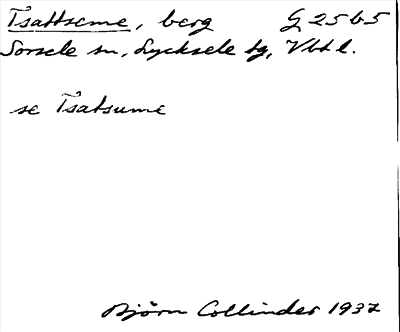 Tsattseme, berg G 25 b5
Sorsele sn, Lycksele tg, Vbtl.
se Tsatsume
Björn Collinder 1937